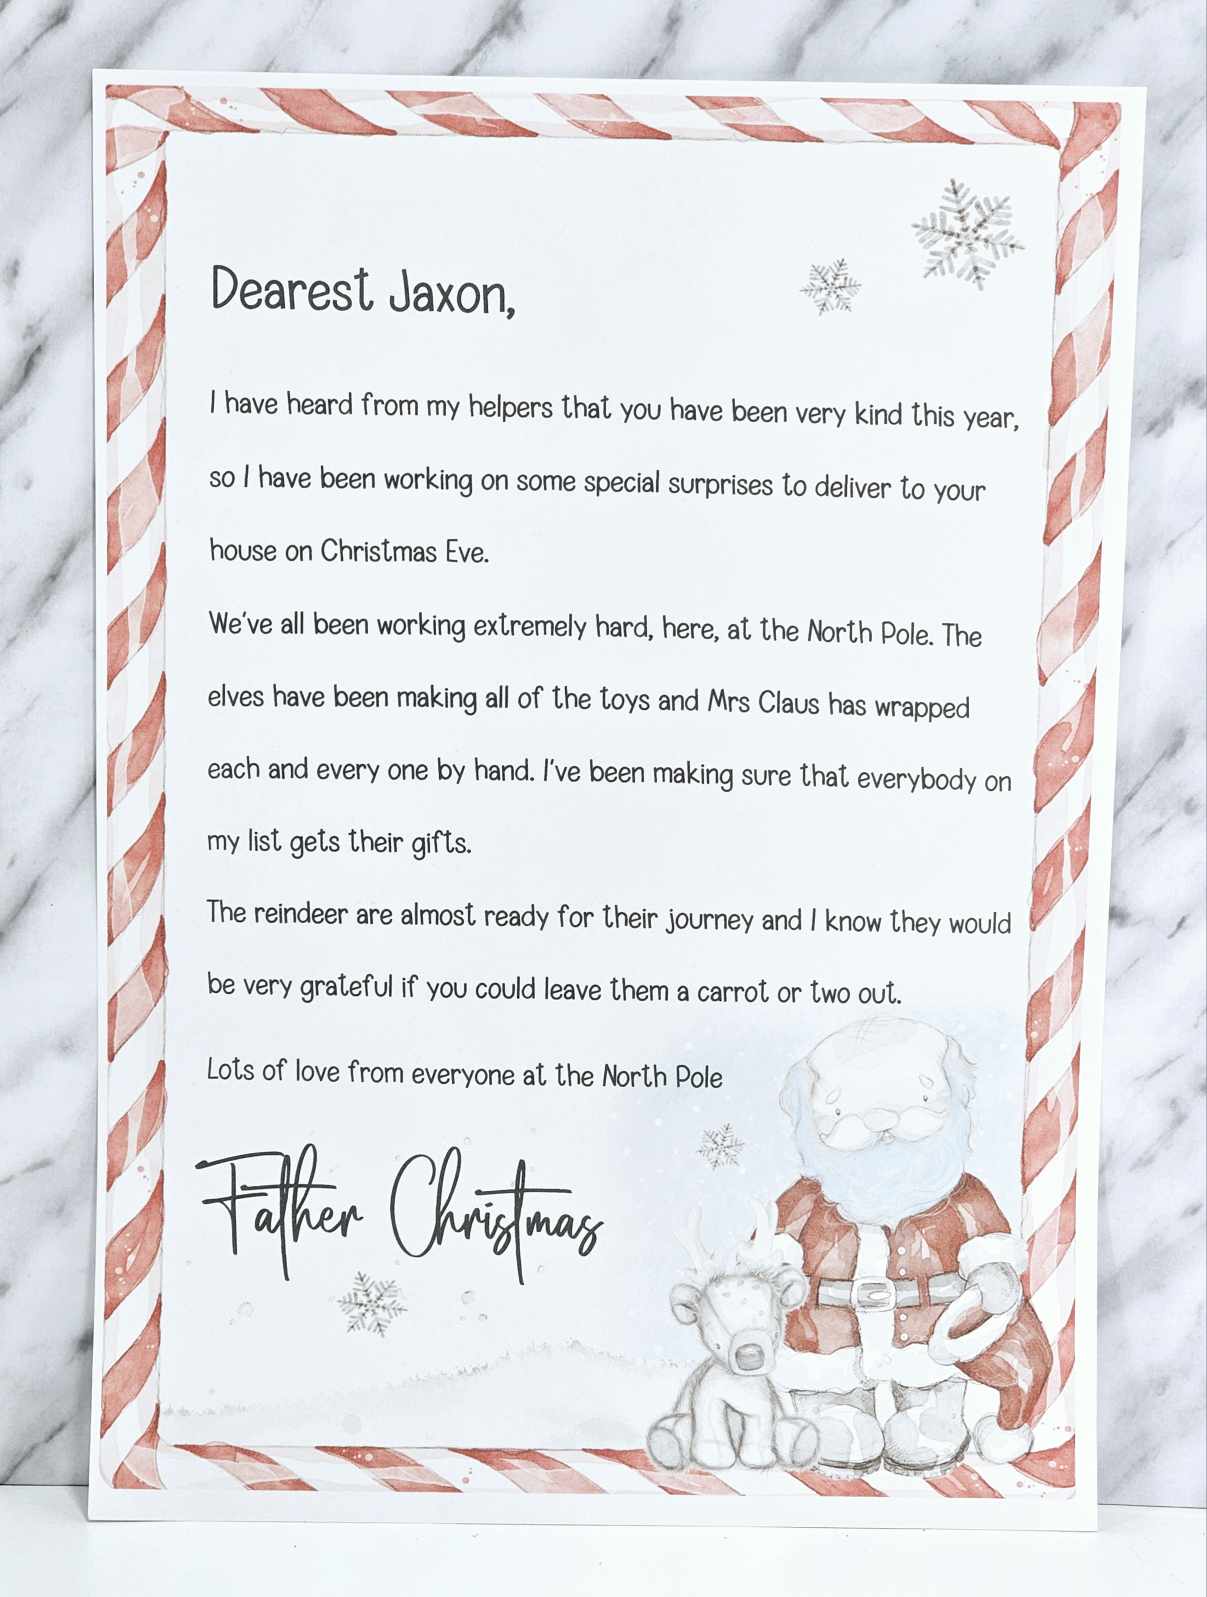 Dearest Jaxon,
I have heard from my helpers that you have been very kind this year,
so I have been working on some special surprises to deliver to your
house on Christmas Eve.
We've all been working extremely hard, here, at the North Pole. The
elves have been making all of the toys and Mrs Claus has wrapped
each and every one by hand. I've been making sure that everybody on
my list gets their gifts.
The reindeer are almost ready for their journey and I know they would
be very grateful if you could leave them a carrot or two out.
Lots of love from everyone at the North Pole
Father Christmas